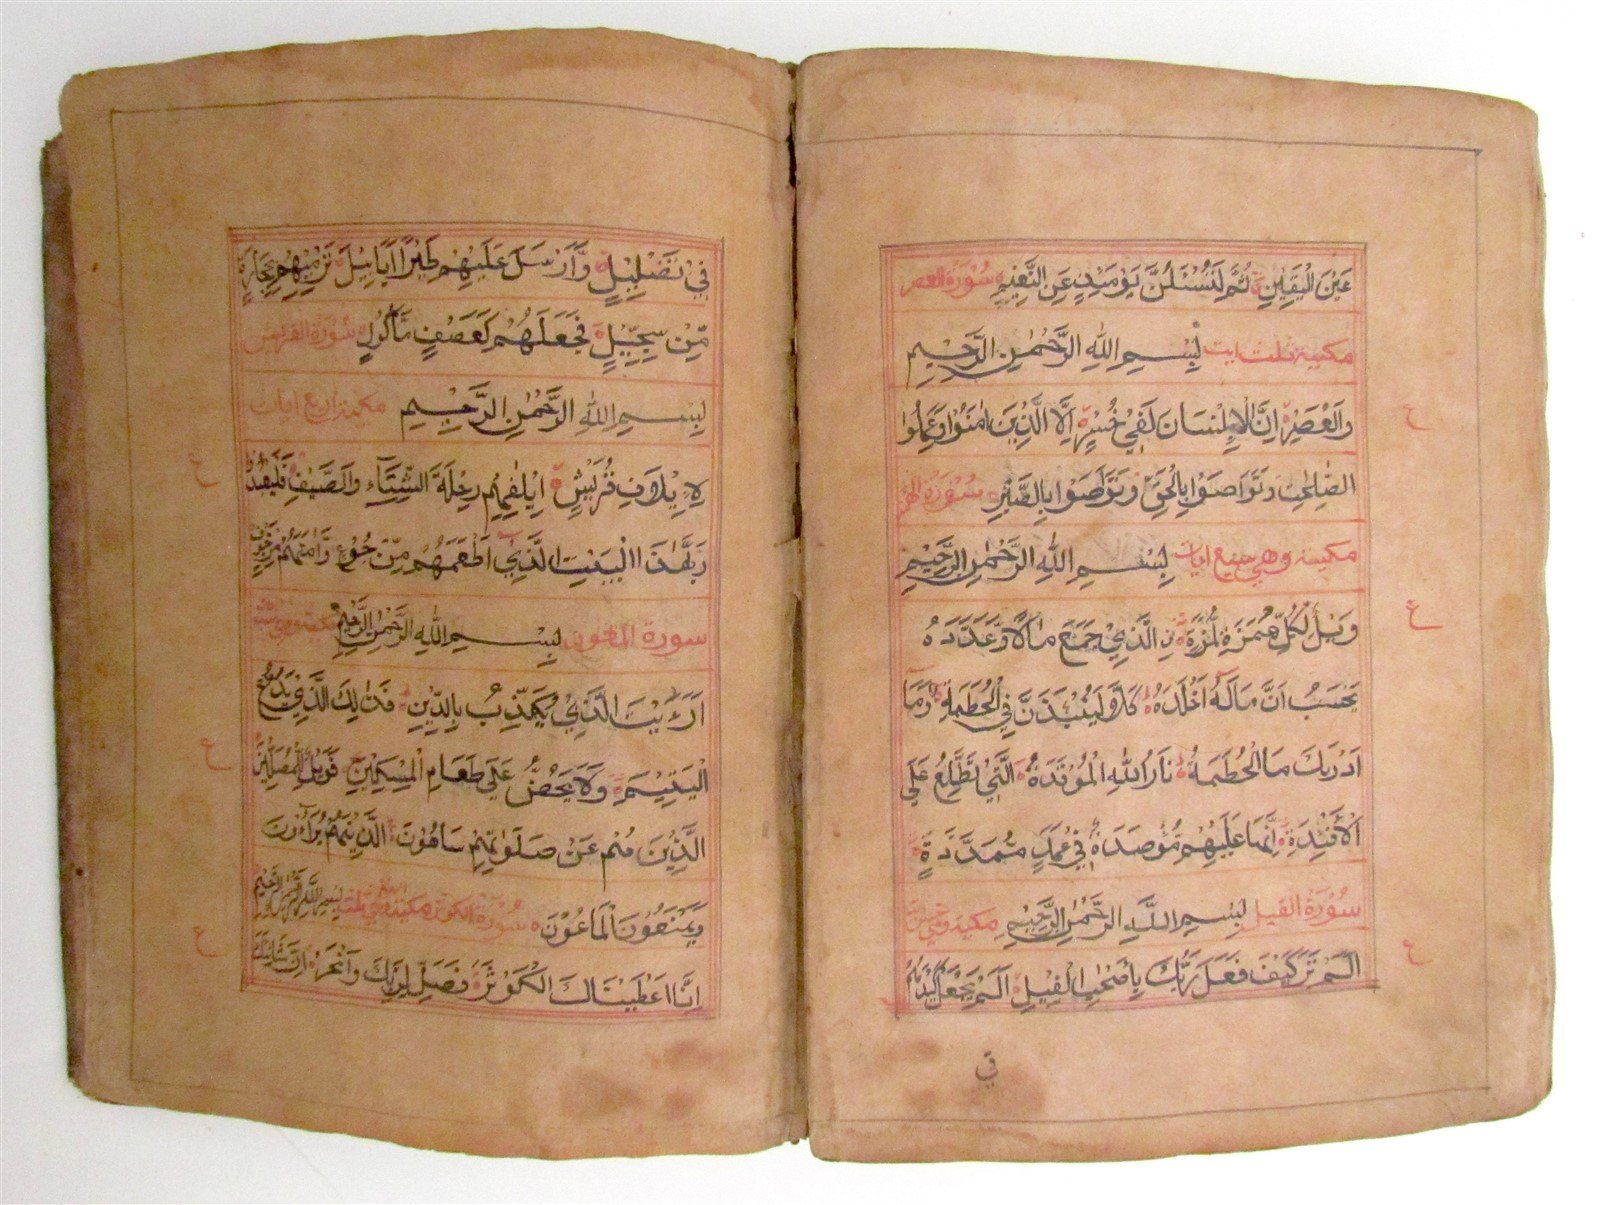 عَيْنَ الْيَقِينِ ثُمَّ لَتُسْئَلُنَّ يَوْمَئِذٍ عَنِ النَّعِيمِ سُورَةُ العصر
مكية ثلث ايت بِسْمِ اللهِ الرَّحْمٰنِ الرَّحِيمِ
وَالْعَصْرِ اِنَّ الْاِنْسَانَ لَفِيْ خُسْرٍ اِلَّا الَّذِيْنَ اٰمَنُوْا وَعَمِلُوا
الصّٰلِحٰتِ وَتَوَاصَوْا بِالْحَقِّ وَتَوَاصَوْا بِالصَّبْرِ سُوْرَةُ الهمزة
مكية وهي ايات بِسْمِ اللهِ الرَّحْمٰنِ الرَّحِيْمِ
ع
وَيْلٌ لِكُلِّ هُمَزَةٍ لُمَزَةٍ نِ الَّذِيْ جَمَعَ مَالًا وَّعَدَّدَهُ
ع
يَحْسَبُ اَنَّ مَالَهُ اَخْلَدَهُ كَلَّا لَيُنْبَذَنَّ فِي الْحُطَمَةِ وَمَا
اَدْرٰىكَ مَا الْحُطَمَةُ نَارُ اللهِ الْمُوْقَدَةُ الَّتِيْ تَطَّلِعُ عَلَى
الْاَفْئِدَةِ اِنَّهَا عَلَيْهِمْ مُّؤْصَدَةٌ فِيْ عَمَدٍ مُّمَدَّدَةٍ
سُوْرَةُ الفيل بِسْمِ اللّٰهِ الرَّحْمٰنِ الرَّحِيْمِ مكية وهي
اَلَمْ تَرَ كَيْفَ فَعَلَ رَبُّكَ بِاَصْحٰبِ الْفِيْلِ اَلَمْ يَجْعَلْ كَيْدَهُمْ
ع
في
فِيْ تَضْلِيْلٍ وَّاَرْسَلَ عَلَيْهِمْ طَيْرًا اَبَابِيْلَ تَرْمِيْهِمْ بِحِجَارَةٍ
مِّنْ سِجِّيْلٍ فَجَعَلَهُمْ كَعَصْفٍ مَّأْكُوْلٍ سُوْرَةُ القريش
بِسْمِ اللهِ الرَّحْمٰنِ الرَّحِيْمِ مكية اربع ايات
لِاِيْلٰفِ قُرَيْشٍ اِيْلٰفِهِمْ رِحْلَةَ الشِّتَآءِ وَالصَّيْفِ فَلْيَعْبُدُوْا
ع
رَبَّ هٰذَا الْبَيْتِ الَّذِيْ اَطْعَمَهُمْ مِّنْ جُوْعٍ وَّاٰمَنَهُمْ مِنْ خَوْفٍ
سورة الماعون بِسْمِ اللهِ الرَّحْمٰنِ الرَّحِيْمِ
اَرَءَيْتَ الَّذِيْ يُكَذِّبُ بِالدِّيْنِ فَذٰلِكَ الَّذِيْ يَدُعُّ
الْيَتِيْمَ وَلَا يَحُضُّ عَلٰى طَعَامِ الْمِسْكِيْنِ فَوَيْلٌ لِّلْمُصَلِّيْنَ
ع
الَّذِيْنَ هُمْ عَنْ صَلَوٰتِهِمْ سَاهُوْنَ الَّذِيْنَ هُمْ يُرَآءُوْنَ
وَيَمْنَعُوْنَ الْمَاعُوْنَ سُوْرَةُ الكوثر مكية وهي ثلث بِسْمِ اللّٰهِ الرَّحْمٰنِ الرَّحِيْمِ
اِنَّا اَعْطَيْنَاكَ الْكَوْثَرَ فَصَلِّ لِرَبِّكَ وَانْحَرْ اِنَّ شَانِئَكَ
ع